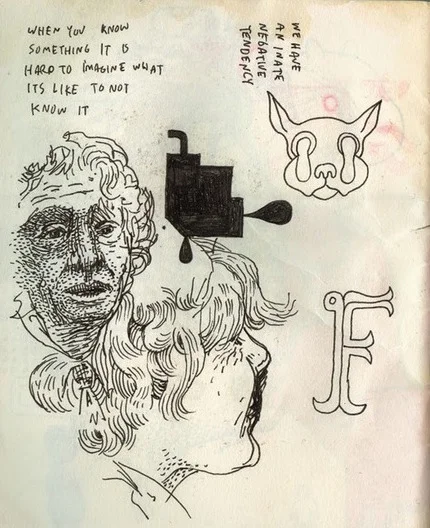 WHEN YOU KNOW
SOMETHING IT IS
HARD TO IMAGINE WHAT
ITS LIKE TO NOT
KNOW IT
WE HAVE
AN INATE
NEGATIVE
TENDENCY
F